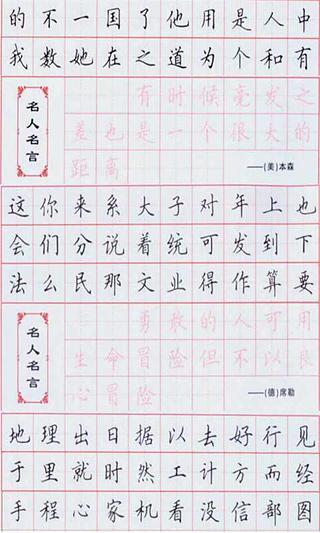 的不一国了他用是人中
我数她在之道为个和有
名人名言
有时候毫发之
差也是一个很大的
距离
——(美)本森
这你来系大子对年上也
会们分说着统可发到下
法么民那文业得作算要
名人名言
勇敢的人可用
生命冒险但不以良
心冒险
——(德)席勒
地理出日据以去好行见
于里就时然工计方而经
手程心家机看没信部图